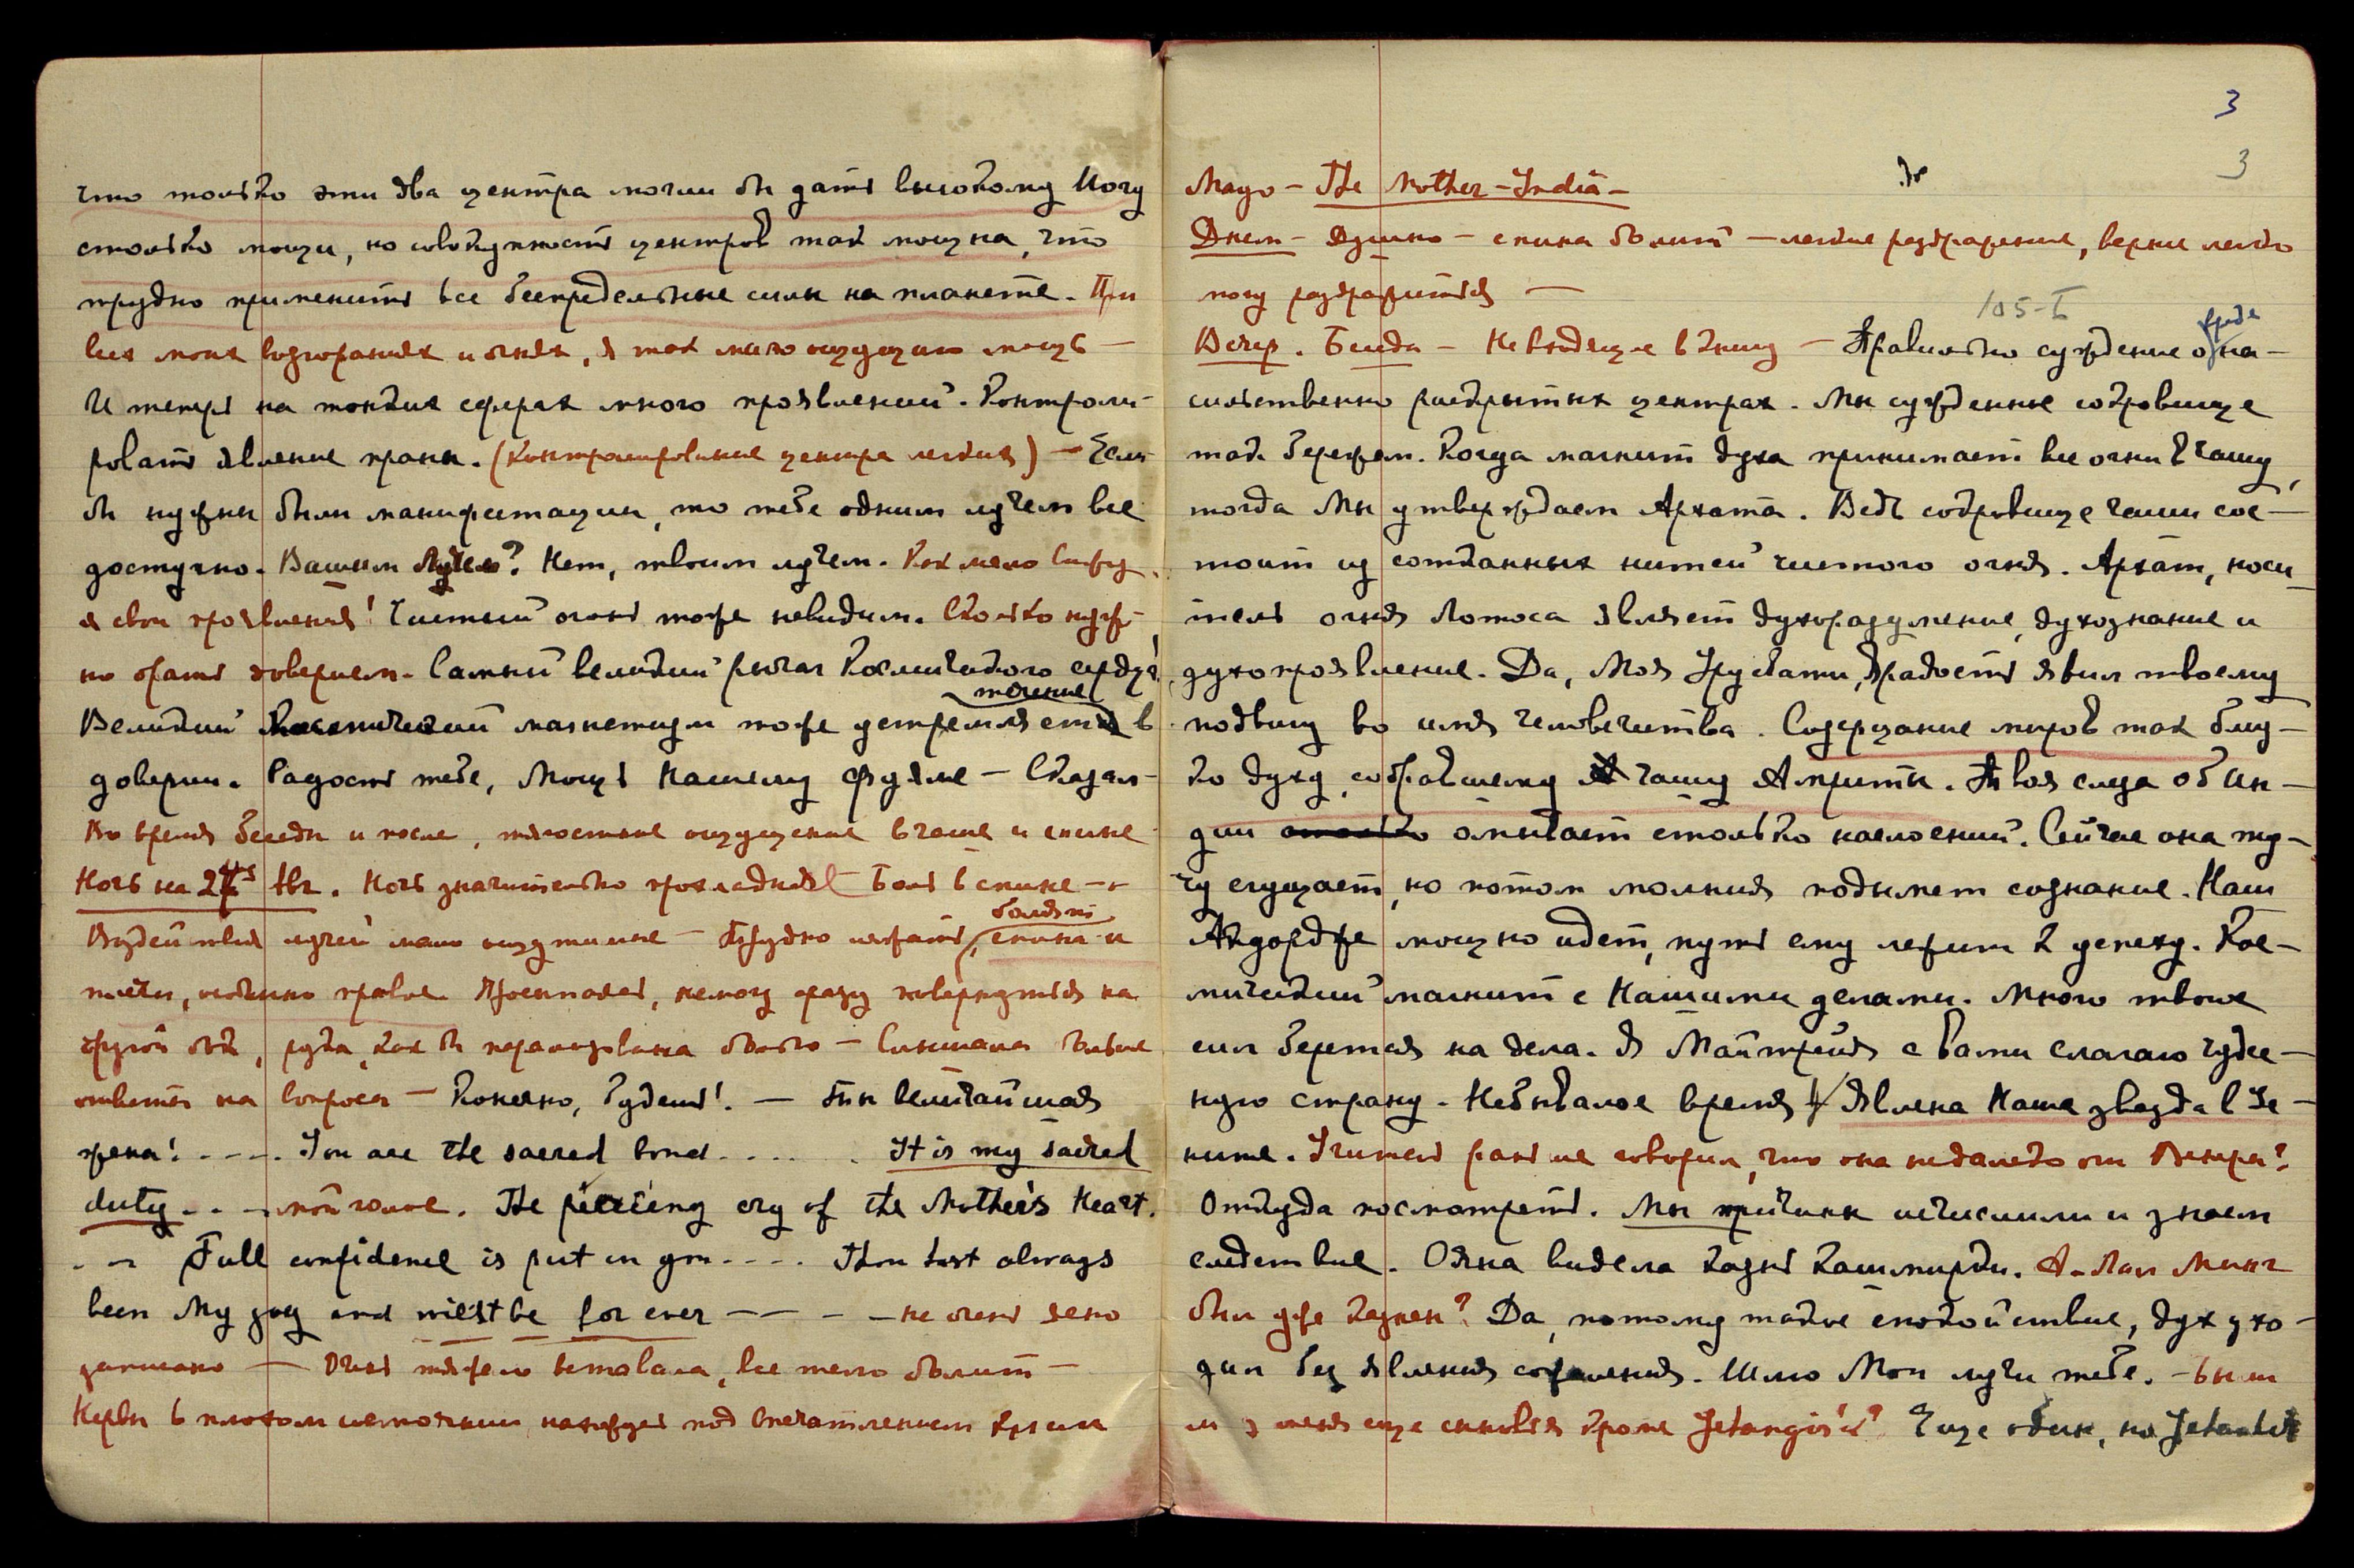 что только эти два центра могли бы дать высокому Йогу
столько мощи, но совокупность центров так мощна, что
трудно применить все беспредельные силы на планете. При
всех моих возгораниях и огнях, я так мало ощущаю мощь —
И теперь на тонких сферах много проявлений. Контроли-
ровать явление праны. (Контролирование центра легких) — Если
бы нужны были манифестации, то тебе одним лучем все
доступно. Вашим Лучем? Нет, твоим лучем. Как мало вижу
я свои проявления! Чистый огонь тоже невидим. Сколько нуж-
но брать доверием. Самый великий рычаг Космического сердца!
течение
Великий магнетизм тоже устремляется в
доверии. Радость тебе, Мощь Нашему Фуяме — Сказал-
Во время беседы и после, тягостные ощущение в чаше и спине
Ночь на Авг. Ночь значительно прохладная Боль в спине —
болят
Воздействия лучей мало ощутимые — Трудно лежать, спина и
плечи, особенно правое. Проснулась, не могу сразу повернуться на
другой бок, рука, как бы парализована была — Слышала
ответы на вопросы — Конечно, будешь! — Ты величайшая
жена! - - - . You are the sacred bond . . . . . It is my sacred
duty - - - мой голос. The piercing cry of the Mother's Heart.
. — Full confidence is put in you - - - . Thou hast always
been My joy and wilst be for ever — — — — не очень ясно
записано — Очень тяжело вставала, все тело болит —
Нервы в плохом состоянии, нахожусь под впечатлением книги
3
3
Mayo — The Mother-India —
Днем — Душно — спина болит — легкие раздражение, вернее легко
могу раздражиться —
105-Б
вреде
Вечер. Беседа — Не входящие в книгу — Правильно суждение о на-
сильственно раскрытых центрах. Мы сужденные сокровище
так бережем. Когда магнит духа принимает все огни в чашу,
тогда Мы утверждаем Архата. Ведь сокровище чаши сос-
тоит из сотканных нитей чистого огня. Архат, носи-
тель огня Лотоса являет духоразумение, духознание и
духопроявление. Да, Моя Урусвати, радость явил твоему
подвигу во имя человечества. Содержание миров так близ-
ко духу, собравшему чашу Амриты. Твоя слеза об Ин-
дии столько омывает столько наслоений. Сейчас она ту-
чу сгущает, но потом молния подымет сознание. Наш
Акдордже мощно идет, путь ему лежит к успеху. Кос-
мический магнит с Нашими делами. Много твоих
сил берется на дела. Я Майтрейя с вами слагаю чудес-
ную страну. Небывалое время Явлена Наша звезда в Зе-
ните. Учитель раньше говорил, что она недалеко от Венеры?
Откуда посмотреть. Мы причины исчислили и знаем
следствие. Ояна видела казнь Кашмирди. А. Лал Минг
был уже казнен? Да, потому такое спокойствие, дух ухо-
дил без явления сожаления. Шлю Мои лучи тебе. — Были
ли у меня еще сыновья кроме Jehangir'а? Еще один, но